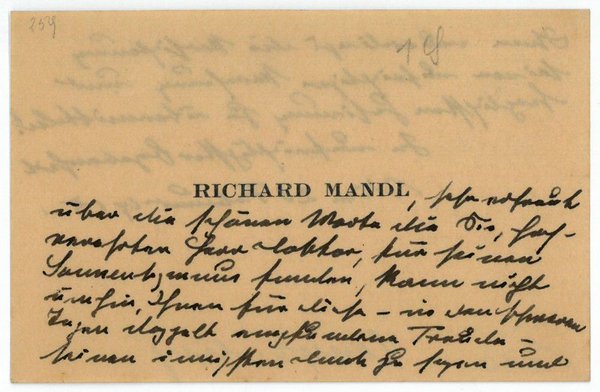 259
RICHARD MANDL, sehr erfreut
über die schönen Worte die Sie, hoch-
verehrter Herr Doktor, für seinen
Sonnenhymnus fanden, kann nicht
umhin, Ihnen für diese – in den schweren
Tagen doppelt empfundene Freude –
seinen innigsten Dank zu sagen und